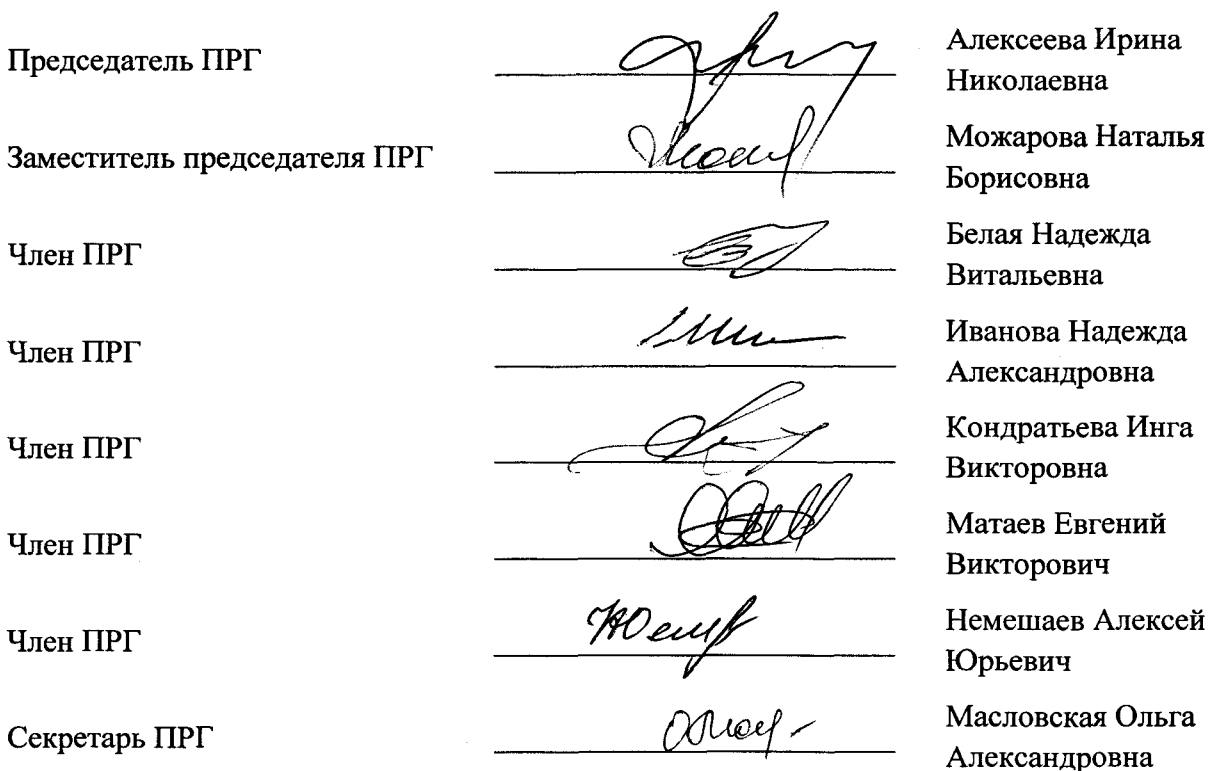 Председатель ПРГ
Алексеева Ирина
Николаевна
Заместитель председателя ПРГ
Можарова Наталья
Борисовна
Член ПРГ
Белая Надежда
Витальевна
Член ПРГ
Иванова Надежда
Александровна
Член ПРГ
Кондратьева Инга
Викторовна
Член ПРГ
Матаев Евгений
Викторович
Член ПРГ
Немешаев Алексей
Юрьевич
Секретарь ПРГ
Масловская Ольга
Александровна